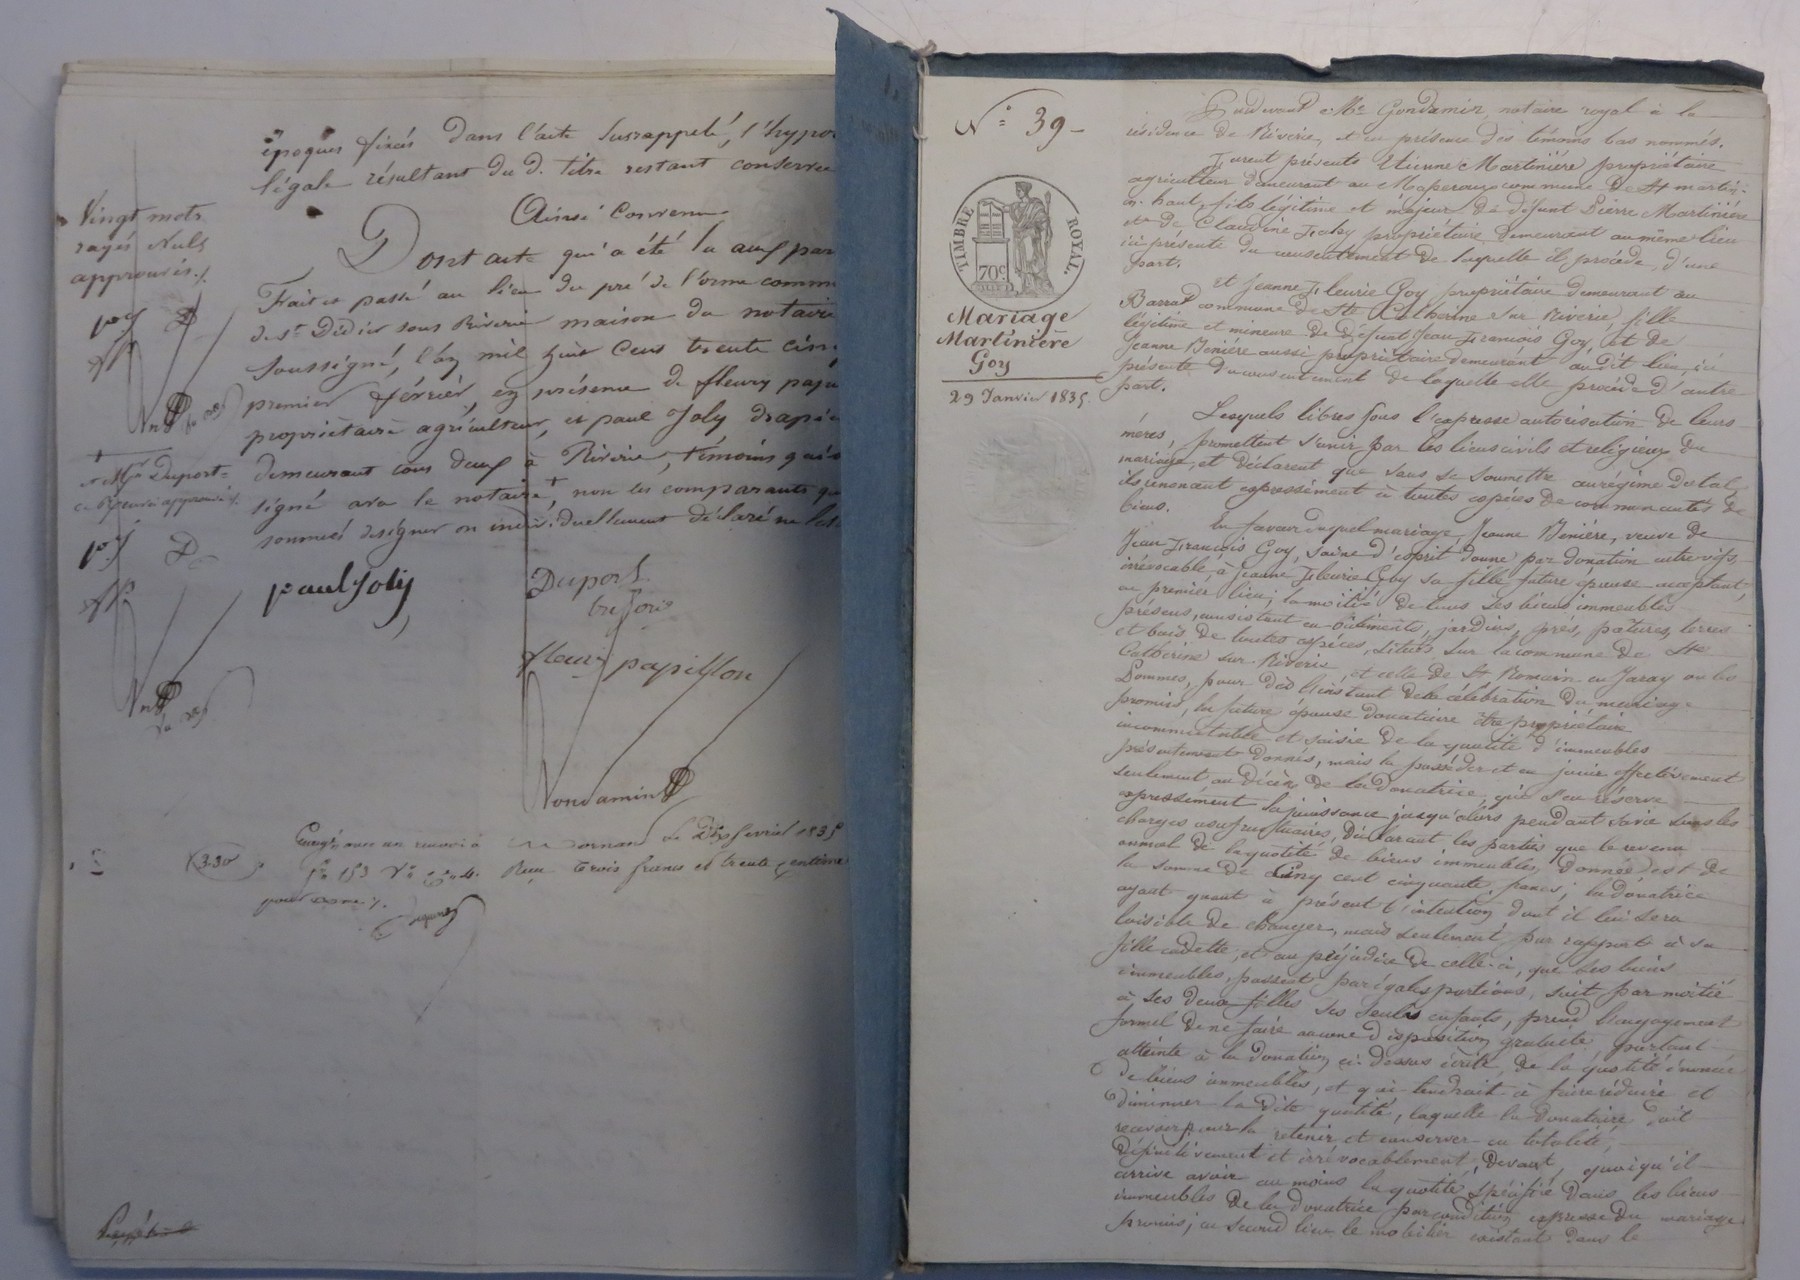 époques fixées dans l'acte susrappelé, l'hypo
légale résultant du d. titre restant conservée
Ainsi convenu
Vingt mots
rayés nuls
approuvés ./.
Dont acte qui a été lu aux par
Fait et passé au lieu du pré de l'orme comm
de St Didier sous Riverie maison du notaire
soussigné, l'an mil huit cent trente cinq
premier février, en présence de fleury papi
propriétaire agriculteur, et paul Joly drapie
demeurant tous deux à Riverie, témoins qui o
signé avec le notaire +, non les comparants qu
sommés de signer ont individuellement déclaré ne le s
+ et Mge Duport
ce renvoi approuvé ./.
paul Joly
Duport
fleury papillon
Condamin
Enregé avec un renvoi à Mornant le février 1835
fo 153 Vo Reçu trois francs et trente centimes
3.30
No = 39 -
TIMBRE ROYAL.
70c
Mariage
Martinière
Goy
29 Janvier 1835.
Pardevant Me Condamin, notaire royal à la
résidence de Riverie, et en présence des témoins bas nommés.
Furent présents Etienne Martinière propriétaire
agriculteur demeurant au Maperoux commune de St martin
en haut, fils légitime et majeur de défunt Pierre Martinière
et de Claudine propriétaire demeurant au même lieu
ici présente du consentement de laquelle il procède, d'une
part.
et Jeanne Fleurie Goy propriétaire demeurant au
Barrat commune de Ste Catherine sur Riverie, fille
légitime et mineure de défunt Jean François Goy, et de
Jeanne Benière aussi propriétaire demeurant au dit lieu, ici
présente du consentement de laquelle elle procède d'autre
part.
Lesquels libres sous l'expresse autorisation de leurs
mères, promettent s'unir par les liens civils et religieux du
mariage, et déclarent que sans se soumettre au régime dotal
ils renoncent expressément à toutes espèces de communautés de
biens.
En faveur duquel mariage, Jeanne Benière, veuve de
Jean François Goy, saine d'esprit donne par donation entre vifs,
irrévocable, à Jeanne Fleurie Goy sa fille future épouse acceptant,
en premier lieu, la moitié de tous ses biens immeubles
présens, consistant en bâtimens, jardins, prés, pâtures, terres
et bois de toutes espèces, situés sur la commune de Ste
Catherine sur Riverie, et celle de St Romain en Jaray ou les
Pommes, pour dès l'instant de la célébration du mariage
promis, la future épouse donataire être propriétaire
incommutable et saisie de la quotité d'immeubles
présentement donnés, mais la posséder et en jouir effectivement
seulement au décès de la donatrice, qui s'en réserve
expressément la jouissance jusqu'alors pendant sa vie sous les
charges usufructuaires, déclarant les parties que le revenu
annuel de la quotité de biens immeubles donnée est de
la somme de Cinq cent cinquante francs; la donatrice
ayant quant à présent l'intention dont il lui sera
loisible de changer, mais seulement par rapport à sa
fille cadette, et au préjudice de celle-ci, que ses biens
immeubles, passent par égales portions, soit par moitié
à ses deux filles ses seuls enfants, prend l'engagement
formel de ne faire aucune disposition gratuite portant
atteinte à la donation ci-dessus écrite, de la quotité énoncée
de biens immeubles, et qui tendrait à faire réduire et
diminuer la dite quotité, laquelle la donataire doit
recevoir pour la retenir et conserver en totalité,
définitivement et irrévocablement, devant, quoiqu'il
arrive avoir au moins la quotité spécifiée dans les biens
immeubles de la donatrice par condition expresse du mariage
promis; en second lieu le mobilier existant dans le